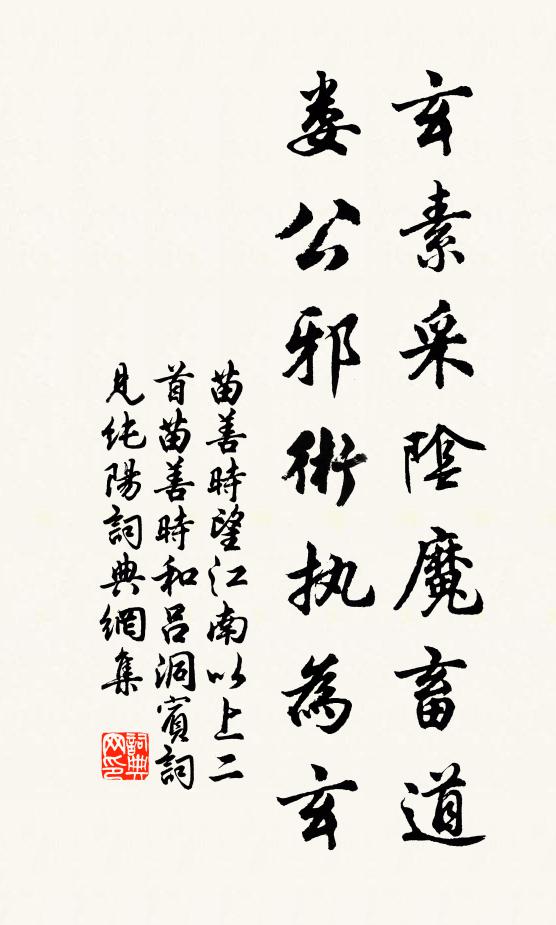 玄素采陰魔畜道
娄公邪術执為玄
苗善時望江南以上二
首苗善時和呂洞賓詞
見纯陽詞典網集
詞典
网印